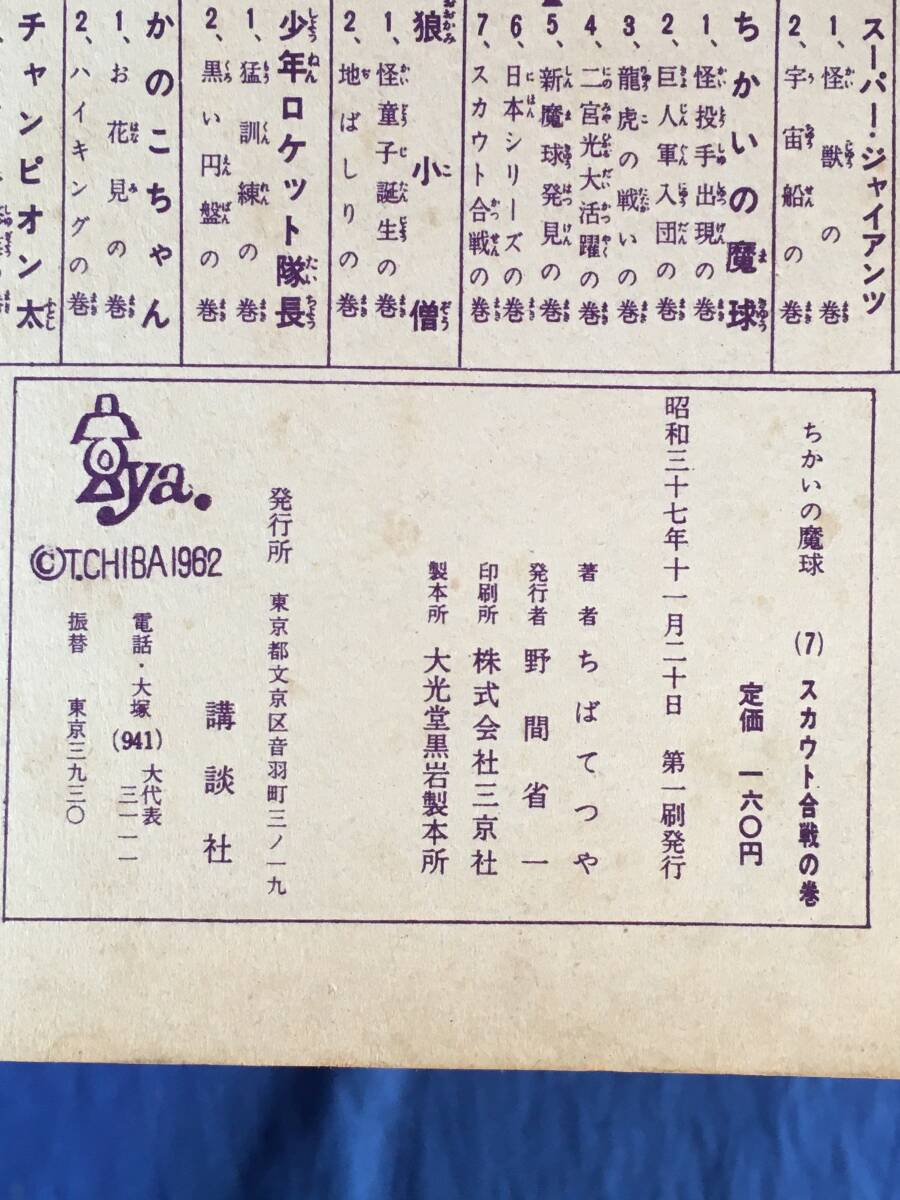 スーパー・ジャイアンツ
1、怪獣の巻
2、宇宙船の巻
ちかいの魔球
1、怪投手出現の巻
2、巨人軍入団の巻
3、龍虎の戦いの巻
4、二宮光大活躍の巻
5、新魔球発見の巻
6、日本シリーズの巻
7、スカウト合戦の巻
狼小僧
1、怪童子誕生の巻
2、地ばしりの巻
少年ロケット隊長
1、猛訓練の巻
2、黒い円盤の巻
かのこちゃん
1、お花見の巻
2、ハイキングの巻
チャンピオン太
ちかいの魔球 (7) スカウト合戦の巻
定価 一六〇円
昭和三十七年十一月二十日 第一刷発行
著者 ちばてつや
発行者 野間省一
印刷所 株式会社三京社
製本所 大光堂黒岩製本所
発行所 東京都文京区音羽町三ノ一九
講談社
電話・大塚(941)大代表三一一一
振替 東京三九三〇
ya.
©T.CHIBA1962